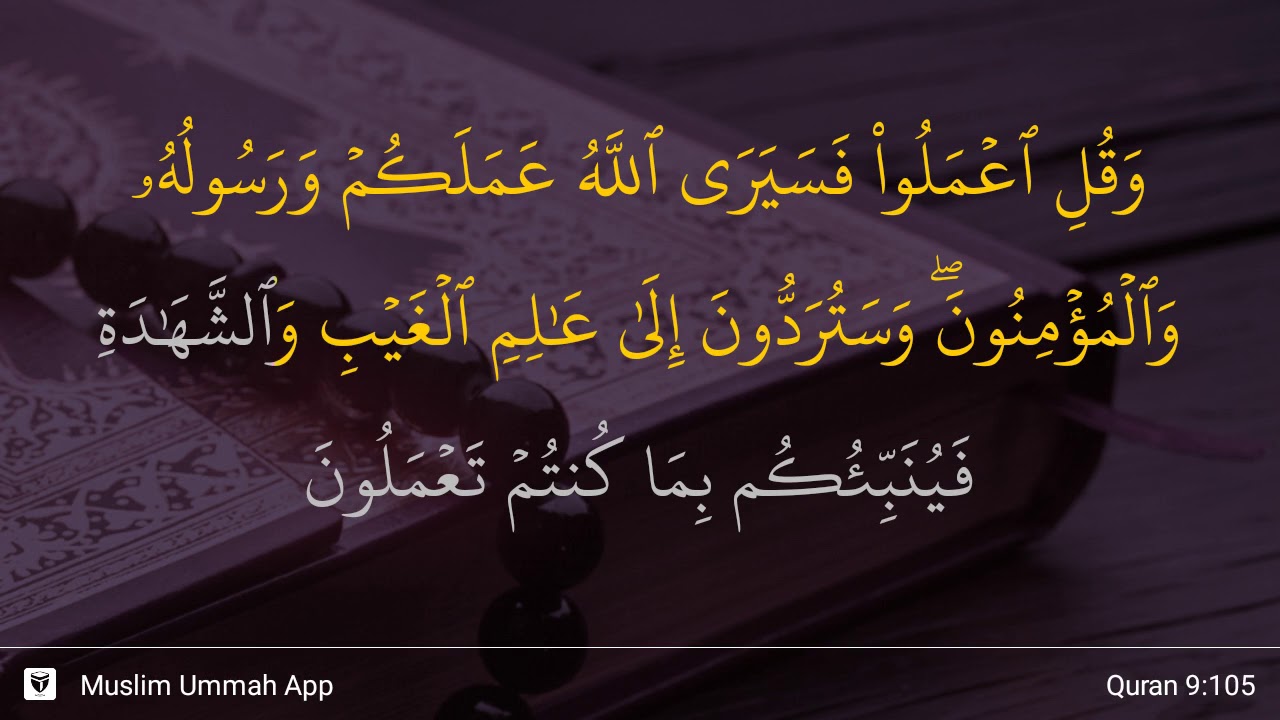 وَقُلِ ٱعْمَلُوا۟ فَسَيَرَى ٱللَّهُ عَمَلَكُمْ وَرَسُولُهُۥ
وَٱلْمُؤْمِنُونَ ۖ وَسَتُرَدُّونَ إِلَىٰ عَـٰلِمِ ٱلْغَيْبِ وَٱلشَّهَـٰدَةِ
فَيُنَبِّئُكُم بِمَا كُنتُمْ تَعْمَلُونَ
Muslim Ummah App
Quran 9:105